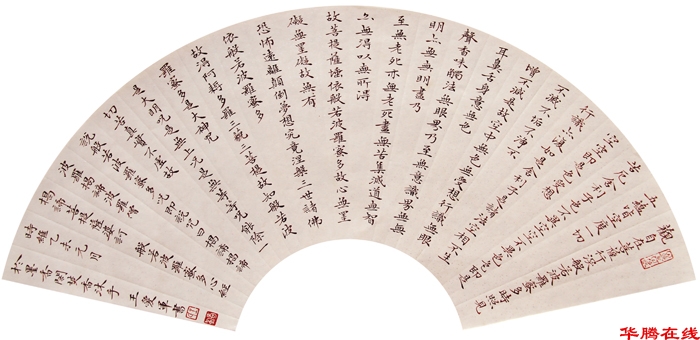 觀自在菩薩行深般若波羅蜜多時照見
五蘊皆空度一切
苦厄舍利子色不異空空不異色色即是
空空即是色受想
行識亦復如是舍利子是諸法空相不生
不滅不垢不淨不
增不減是故空中無色無受想行識無眼
耳鼻舌身意無色
聲香味觸法無眼界乃至無意識界無無
明亦無無明盡乃
至無老死亦無老死盡無苦集滅道無智
亦無得以無所得
故菩提薩埵依般若波羅蜜多故心無罣
礙無罣礙故無有
恐怖遠離顛倒夢想究竟涅槃三世諸佛
依般若波羅蜜多
故得阿耨多羅三藐三菩提故知般若波
羅蜜多是大神咒
是大明咒是無上咒是無等等咒能除一
切苦真實不虛故
說般若波羅蜜多咒即說咒曰揭諦揭諦
波羅揭諦波羅僧
揭諦菩提薩婆訶 般若波羅蜜多心經
時維乙未元月
於墨香閣焚香沐手 王愛軍書
华腾在线